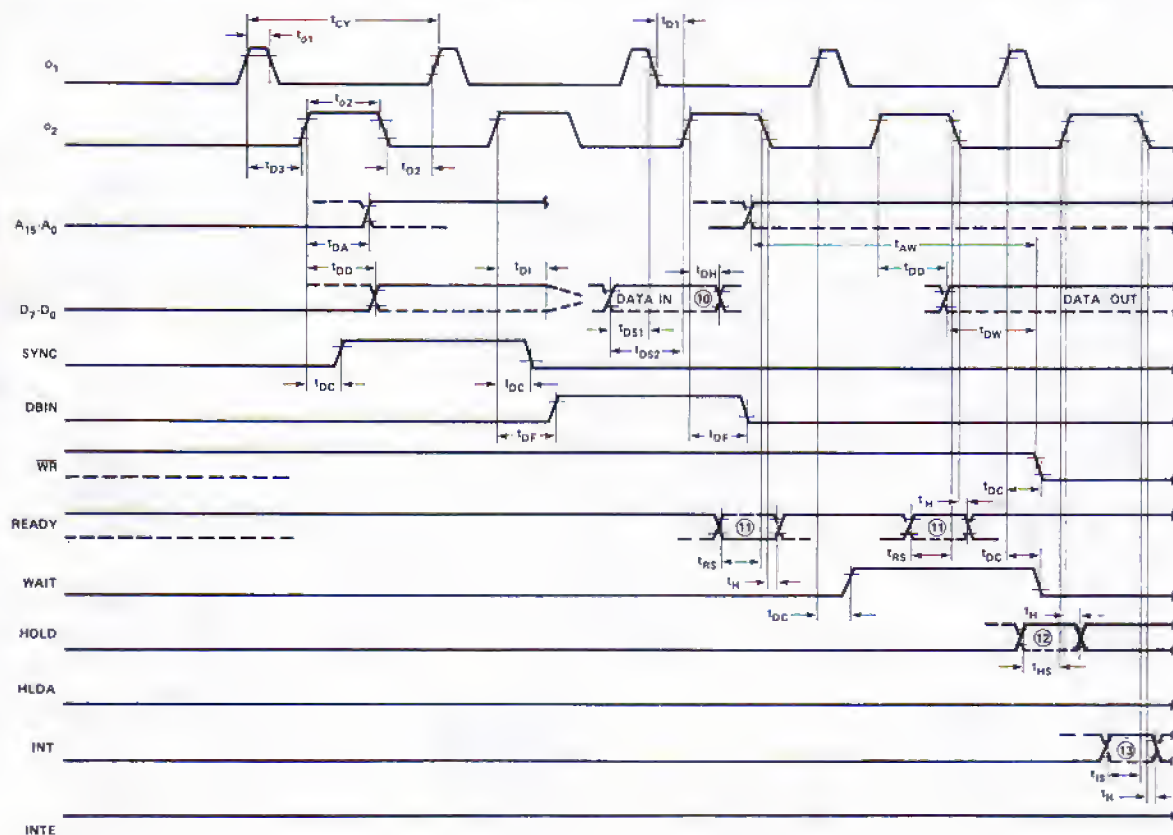 tCY
tø1
tD1
ø1
tø2
ø2
tD3
tD2
A15-A0
tDA
tAW
tDD
tDI
tDH
tDD
D7-D0
DATA IN
⑩
DATA OUT
tDS1
tDW
tDS2
SYNC
tDC
tDC
DBIN
tDF
tDF
WR
tDC
tH
READY
⑪
⑪
tRS
tRS
tDC
WAIT
tH
tDC
tH
HOLD
⑫
tHS
HLDA
INT
⑬
tIS
tH
INTE